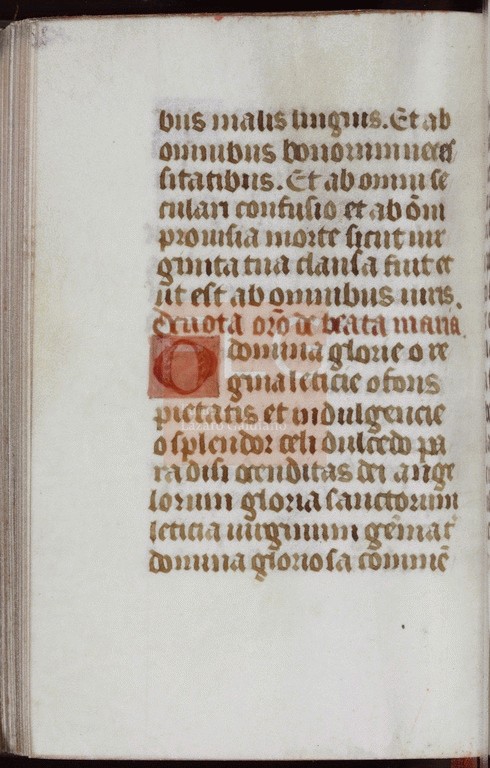 bus malis linguis. Et ab
omnibus bonorum neces
sitatibus. Et ab omni se
culari confusio et ab õm
prouisia morte sicut uir
ginita tua clausa fuit et
ut est ab omnibus uiris.
Deuota orõ de beata maria.
O domina glorie o re
gina leticie o fons
pietatis et indulgencie
o splendor celi dulcedo pa
radisi dei ange
lorum gloria sanctorum
leticia uirginum gẽmat
domina gloriosa commẽ
Lázaro Galdiano